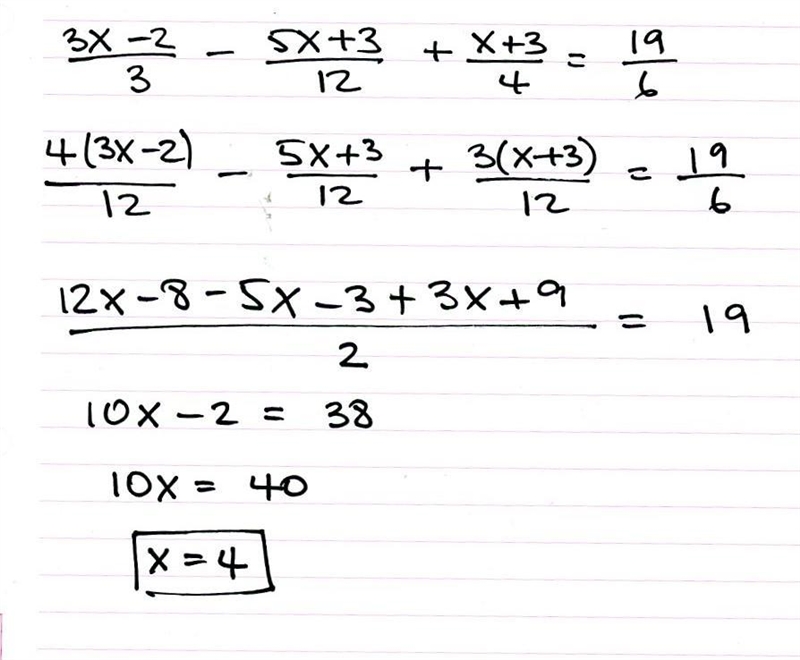 (3x-2)/3 - (5x+3)/12 + (x+3)/4 = 19/6
4(3x-2)/12 - (5x+3)/12 + 3(x+3)/12 = 19/6
(12x-8-5x-3+3x+9)/2 = 19
10x-2 = 38
10x = 40
x = 4